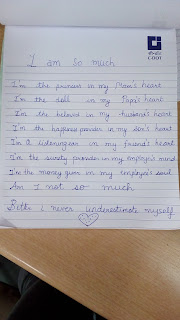 I am so much
I'm the princess in my Mom's heart
I'm the doll in my Papa's heart
I'm the beloved in my husband's heart
I'm the happiness provider in my Son's heart
I'm a in my friend's heart
I'm the surety provider in my employer's mind
I'm the money giver in my employee's soul
Am I not so much
Better I never underestimate myself